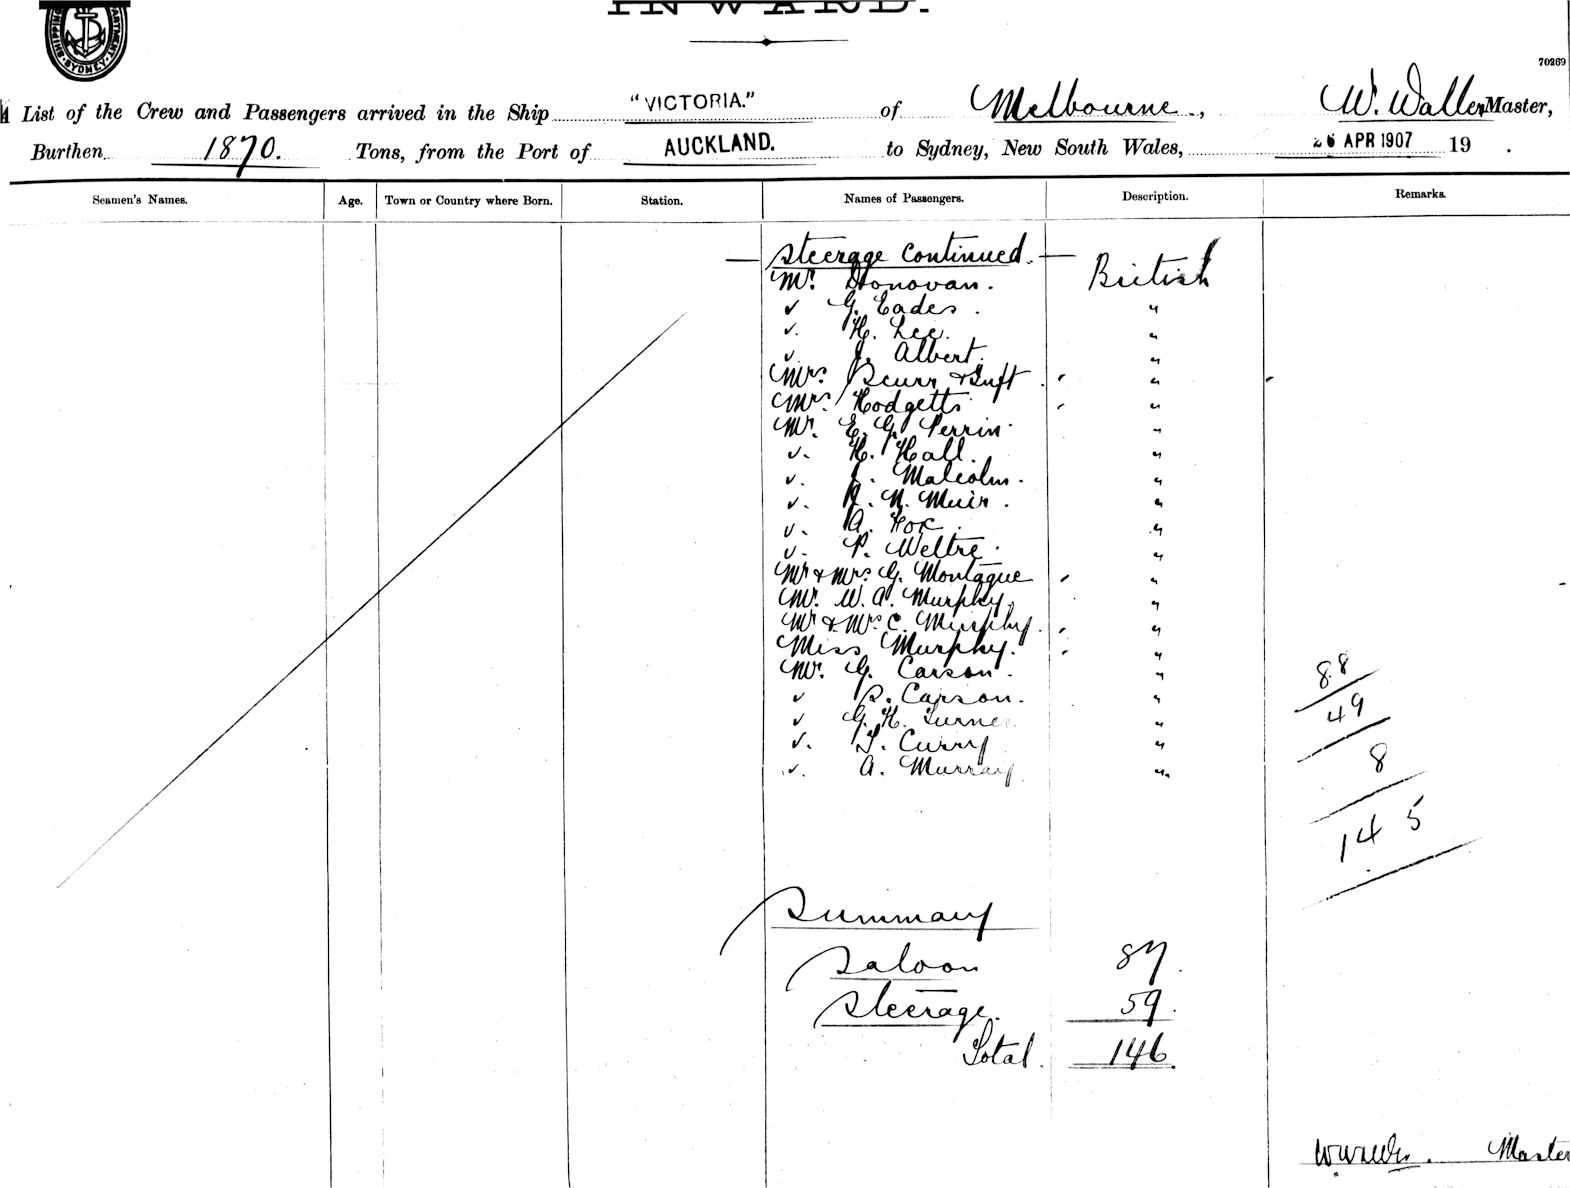 INWARD.
SHIPPING DEPARTMENT. SYDNEY.
70269
List of the Crew and Passengers arrived in the Ship "VICTORIA." of Melbourne, W. Waller Master,
Burthen 1870. Tons, from the Port of AUCKLAND. to Sydney, New South Wales, 26 APR 1907 19 .
Seamen's Names. Age. Town or Country where Born. Station. Names of Passengers. Description. Remarks.
Steerage continued. British
Mr. Donovan.
✓ G. Eades. "
✓ H. Lee. "
✓ J. Albert. "
Mrs. Scurr & Inft "
Mrs. Hodgetts "
Mr. E. G. Perrin "
✓ H. Hall. "
✓ J. Malcolm. "
✓ R. N. Muir. "
✓ A. Fox. "
✓ P. Weltre. "
Mr & Mrs. G. Montague "
Mr. W. A. Murphy. "
Mr & Mrs C. Murphy. "
Miss Murphy. "
Mr. G. Carson. "
✓ S. Carson. "
✓ G. H. Turner "
✓ T. Curry "
✓ A. Murray "
88
49
8
145
Summary
Saloon 87.
Steerage. 59.
Total. 146.
W. Waller. Master